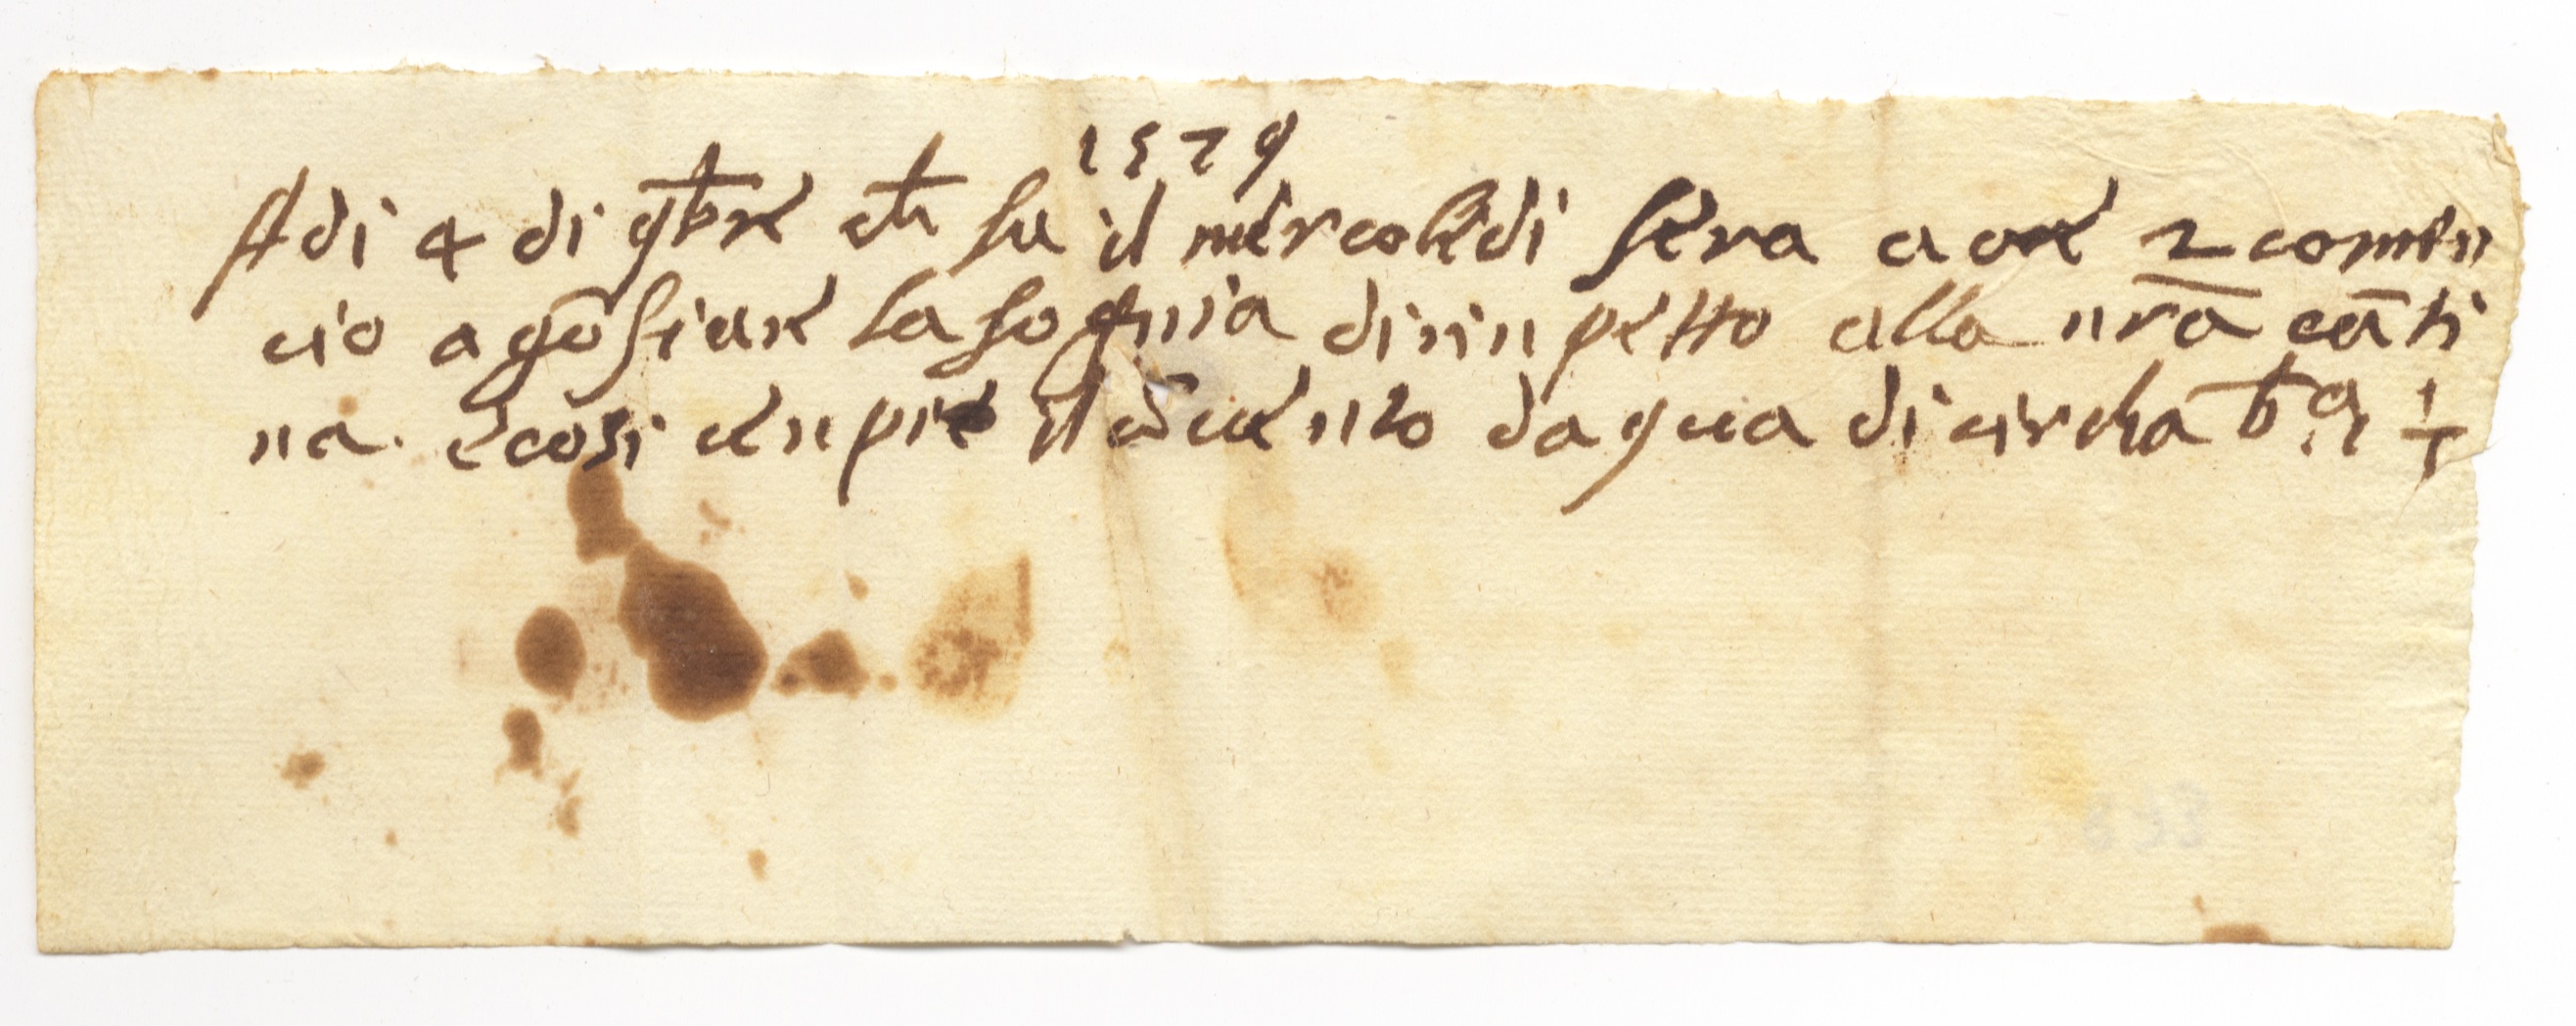 1579
Adi 4 di 9bre che fu il mercoledi sera a ore 2 comin
cio a gōfiare la fognia dirinpetto alla nrā cāti
na. e cosi enpie il d'aqua di circha bª